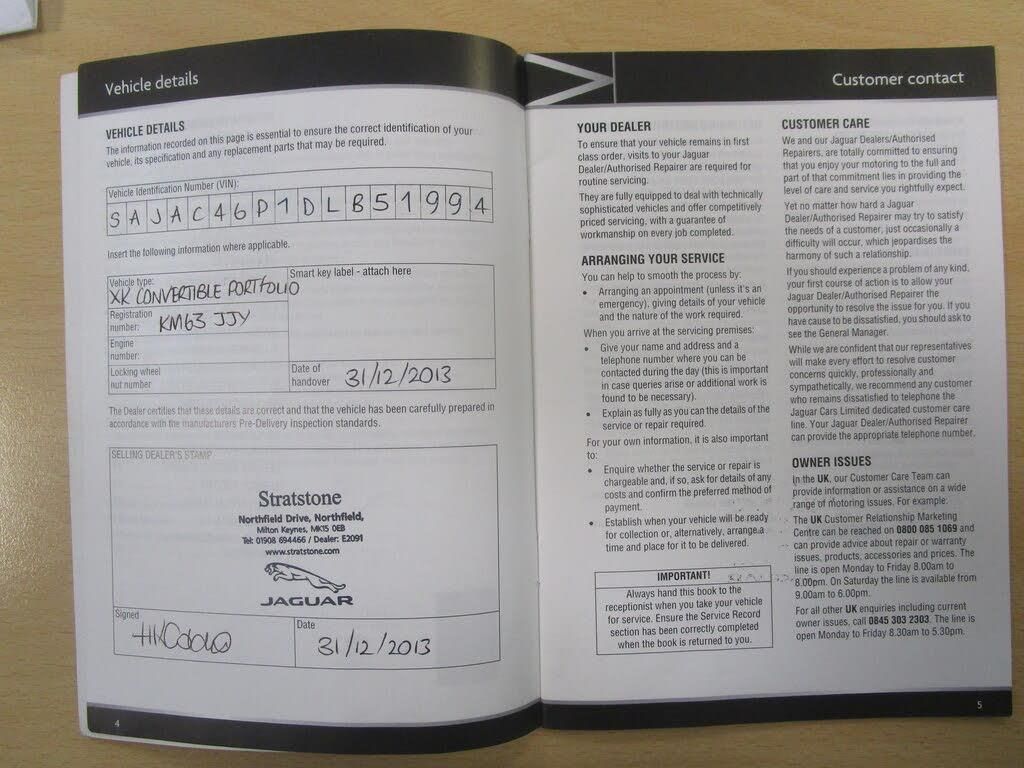 Vehicle details
VEHICLE DETAILS
The information recorded on this page is essential to ensure the correct identification of your
vehicle, its specification and any replacement parts that may be required.
Vehicle Identification Number (VIN):
S A J A C 4 6 P 1 D L B 5 1 9 9 4
Insert the following information where applicable.
Vehicle type:
XK CONVERTIBLE PORTFOLIO
Smart key label - attach here
Registration
number: KM63 JJY
Engine
number:
Locking wheel
nut number
Date of
handover 31/12/2013
The Dealer certifies that these details are correct and that the vehicle has been carefully prepared in
accordance with the manufacturers Pre-Delivery inspection standards.
SELLING DEALER'S STAMP
Stratstone
Northfield Drive, Northfield,
Milton Keynes, MK15 0EB
Tel: 01908 694466 / Dealer: E2091
www.stratstone.com
JAGUAR
Signed
Date
31/12/2013
4
Customer contact
YOUR DEALER
To ensure that your vehicle remains in first
class order, visits to your Jaguar
Dealer/Authorised Repairer are required for
routine servicing.
They are fully equipped to deal with technically
sophisticated vehicles and offer competitively
priced servicing, with a guarantee of
workmanship on every job completed.
ARRANGING YOUR SERVICE
You can help to smooth the process by:
• Arranging an appointment (unless it's an
emergency), giving details of your vehicle
and the nature of the work required.
When you arrive at the servicing premises:
• Give your name and address and a
telephone number where you can be
contacted during the day (this is important
in case queries arise or additional work is
found to be necessary).
• Explain as fully as you can the details of the
service or repair required.
For your own information, it is also important
to:
• Enquire whether the service or repair is
chargeable and, if so, ask for details of any
costs and confirm the preferred method of
payment.
• Establish when your vehicle will be ready
for collection or, alternatively, arrange a
time and place for it to be delivered.
IMPORTANT!
Always hand this book to the
receptionist when you take your vehicle
for service. Ensure the Service Record
section has been correctly completed
when the book is returned to you.
CUSTOMER CARE
We and our Jaguar Dealers/Authorised
Repairers, are totally committed to ensuring
that you enjoy your motoring to the full and
part of that commitment lies in providing the
level of care and service you rightfully expect.
Yet no matter how hard a Jaguar
Dealer/Authorised Repairer may try to satisfy
the needs of a customer, just occasionally a
difficulty will occur, which jeopardises the
harmony of such a relationship.
If you should experience a problem of any kind,
your first course of action is to allow your
Jaguar Dealer/Authorised Repairer the
opportunity to resolve the issue for you. If you
have cause to be dissatisfied, you should ask to
see the General Manager.
While we are confident that our representatives
will make every effort to resolve customer
concerns quickly, professionally and
sympathetically, we recommend any customer
who remains dissatisfied to telephone the
Jaguar Cars Limited dedicated customer care
line. Your Jaguar Dealer/Authorised Repairer
can provide the appropriate telephone number.
OWNER ISSUES
In the UK, our Customer Care Team can
provide information or assistance on a wide
range of motoring issues. For example:
The UK Customer Relationship Marketing
Centre can be reached on 0800 085 1069 and
can provide advice about repair or warranty
issues, products, accessories and prices. The
line is open Monday to Friday 8.00am to
8.00pm. On Saturday the line is available from
9.00am to 6.00pm.
For all other UK enquiries including current
owner issues, call 0845 303 2303. The line is
open Monday to Friday 8.30am to 5.30pm.
5